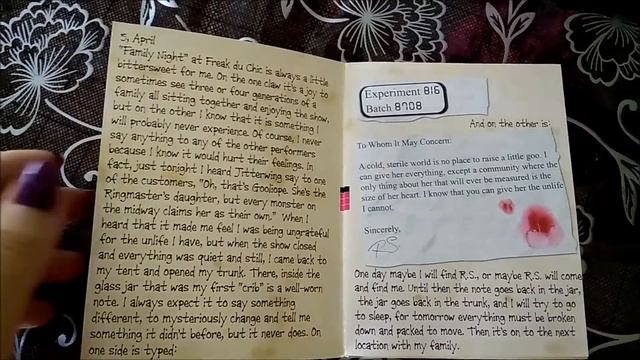 5, April
"Family Night" at Freak du Chic is always a little
bittersweet for me. On the one claw it's a joy to
sometimes see three or four generations of a
family all sitting together and enjoying the show,
but on the other I know that it is something I
will probably never experience. Of course, I never
say anything to any of the other performers
because I know it would hurt their feelings. In
fact, just tonight I heard Jitterwing say to one
of the customers, "Oh, that's Gooliope. She's the
Ringmaster's daughter, but every monster on
the midway claims her as their own." When I
heard that it made me feel I was being ungrateful
for the unlife I have, but when the show closed
and everything was quiet and still, I came back to
my tent and opened my trunk. There, inside the
glass jar that was my first "crib" is a well-worn
note. I always expect it to say something
different, to mysteriously change and tell me
something it didn't before, but it never does. On
one side is typed:
Experiment 816
Batch 8708
And on the other is:
To Whom It May Concern:
A cold, sterile world is no place to raise a little goo. I
can give her everything, except a community where the
only thing about her that will ever be measured is the
size of her heart. I know that you can give her the unlife
I cannot.
Sincerely,
R.S.
One day maybe I will find R.S., or maybe R.S. will come
and find me. Until then the note goes back in the jar,
the jar goes back in the trunk, and I will try to go
to sleep, for tomorrow everything must be broken
down and packed to move. Then it's on to the next
location with my family.